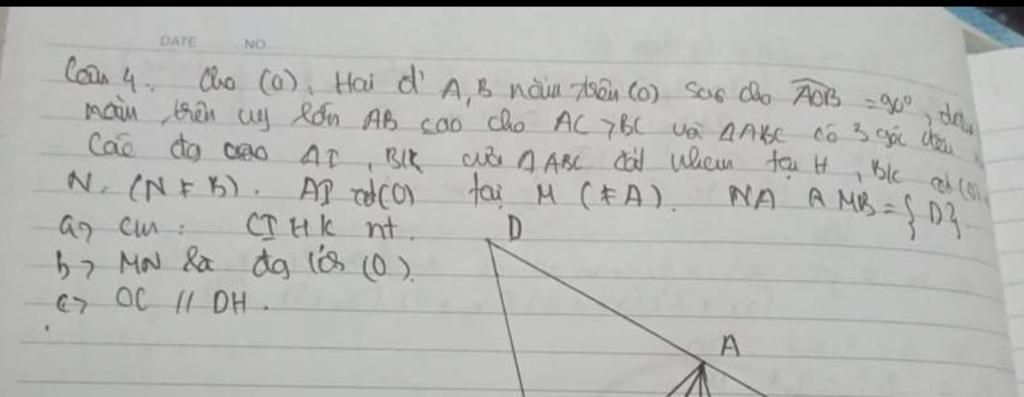 DATE NO
Câu 4. Cho (O). Hai đ' A, B nằm trên (O) sao cho AOB = 90°,
nằm trên cung lớn AB sao cho AC > BC và ΔABC có 3 góc
Các đg cao AI, BK của ΔABC cắt nhau tại H, BK cắt (O)
N. (N ≠ B). AI cắt (O) tại M (≠ A). NA ∩ MB = {D}.
a) cm: CIHK nt.
D
b) MN là đg kính (O).
c) OC // DH.
A